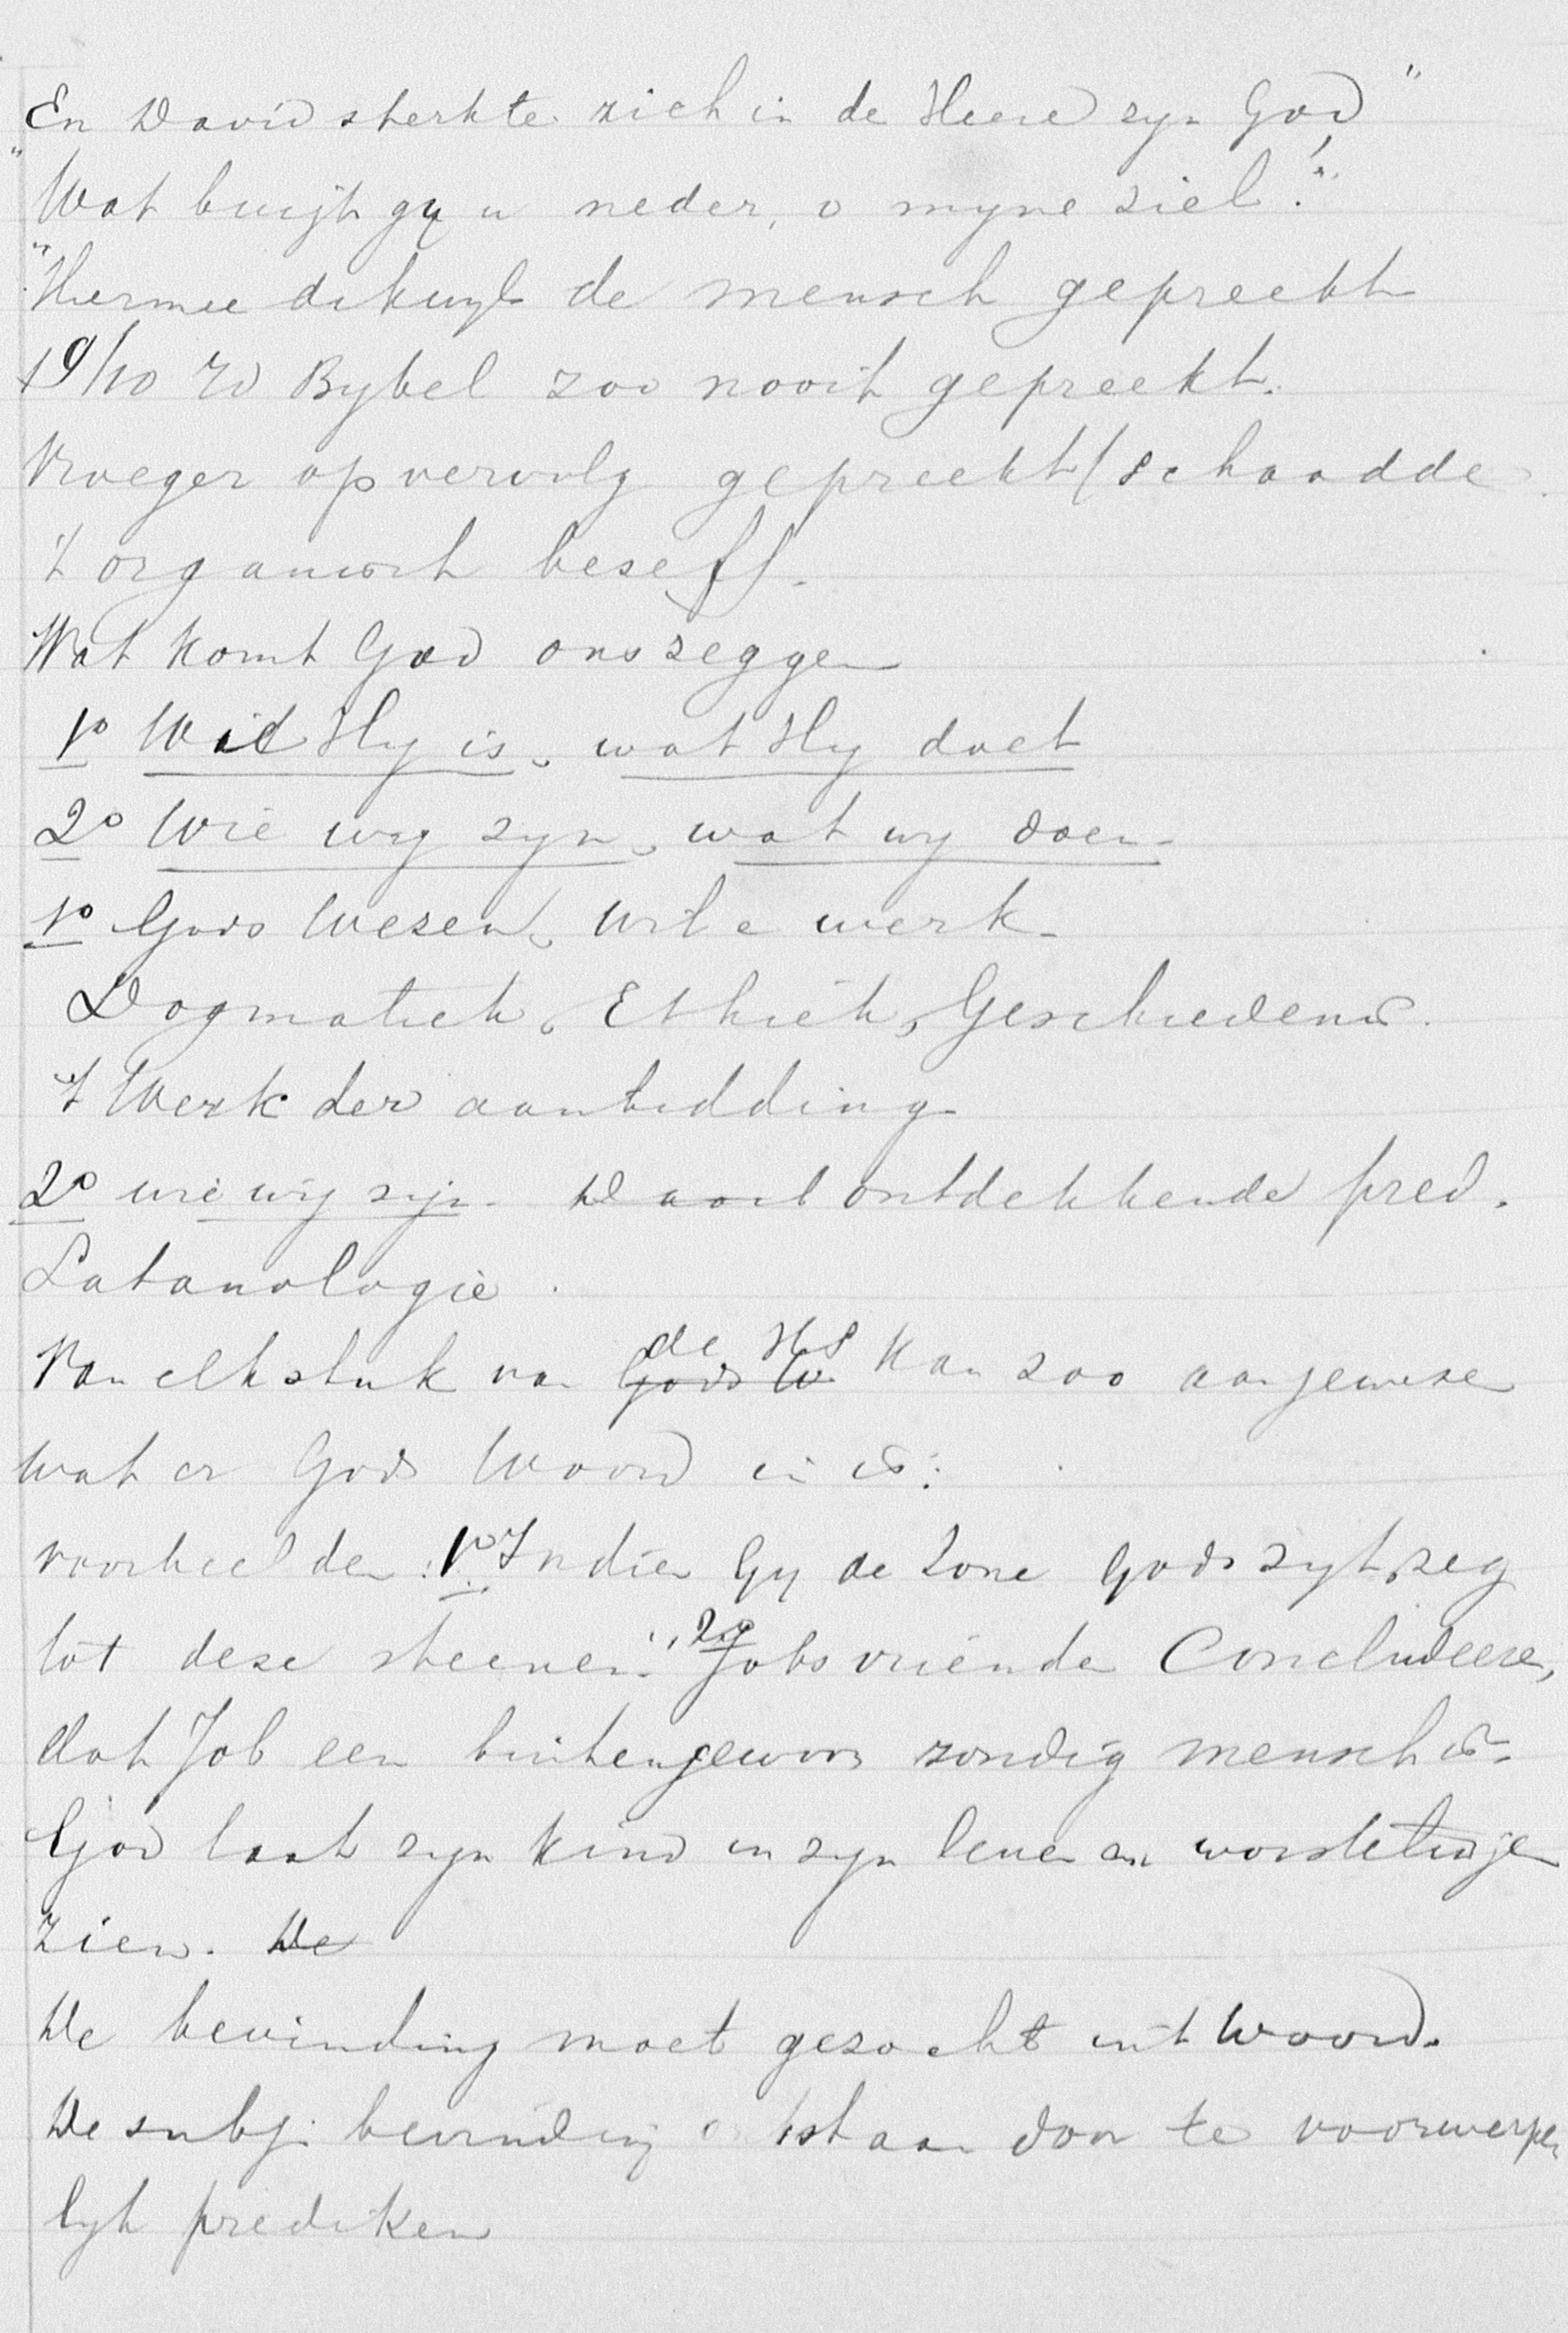 En David sterkte zich in de Heere zyn God"
"Wat buigt gy u neder, o myne ziel!"
"Hiermee dikwyls de mensch gepreekt
19/10 v/d Bybel zoo nooit gepreekt.
Vroeger op vervolg gepreekt/schaadde
't organisch beseff.
Wat komt God ons zeggen
1o Wie Hy is, wat Hy doet
2o Wie wy zyn, wat wy doen.
1o Gods Wezen, wil e werk.
Dogmatiek, Ethiek, Geschiedenis.
't Werk der aanbidding
2o wie wij zijn. Daarb ontdekkende pred.
Satanologie.
Van elk stuk van de HS kan zoo aangeweze
wat er Gods Woord in is:
voorbeelden: 1o Indien Gy de Zone Gods zyt, zeg
tot deze steenen", 2o Jobs vrienden Concludeere,
dat Job een buitengewoon zondig mensch is.
God laat zyn kind in zyn leven en worstelinge
zien. De
De bevinding moet gezocht uit Woord.
De subj. bevinding ontstaan door te voorwerpe
lyk prediken